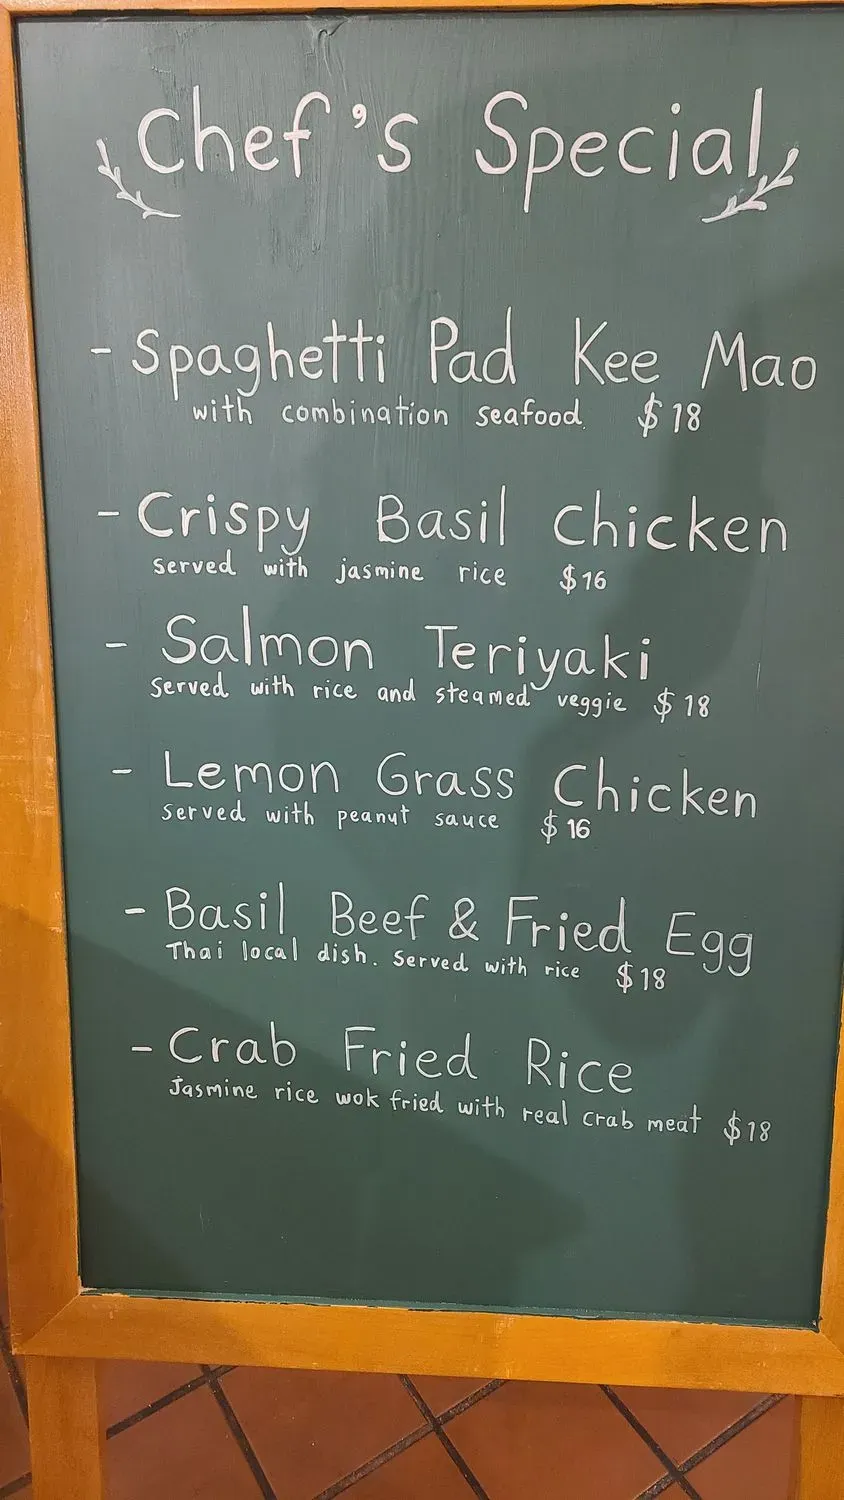 Chef's Special
- Spaghetti Pad Kee Mao
with combination seafood. $18
- Crispy Basil Chicken
Served with jasmine rice $16
- Salmon Teriyaki
Served with rice and steamed veggie $18
- Lemon Grass Chicken
Served with peanut sauce $16
- Basil Beef & Fried Egg
Thai local dish. Served with rice $18
- Crab Fried Rice
Jasmine rice wok fried with real crab meat $18